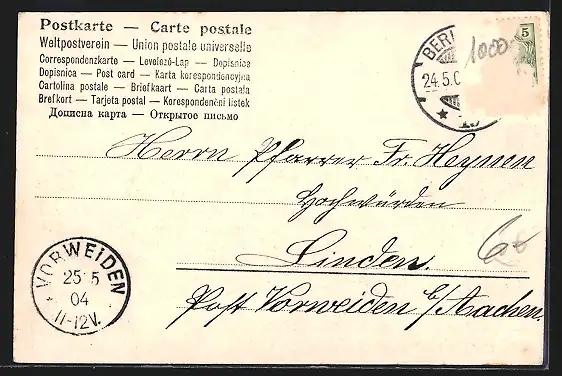 Postkarte — Carte postale
Weltpostverein — Union postale universelle
Correspondenzkarte — Levelező-Lap — Dopisnice
Dopisnica — Post card — Karta korespondencyjna
Cartolina postale — Briefkaart — Carta postala
Brefkort — Tarjeta postal — Korespondenční lístek
Дописна карта — Открытое письмо
BERL
24.5.0
5
1000
Herrn Pfarrer Fr. Heynen
Hochwürden
Linden.
Post Vorweiden b/Aachen.
VORWEIDEN
25 5
04
11-12V.